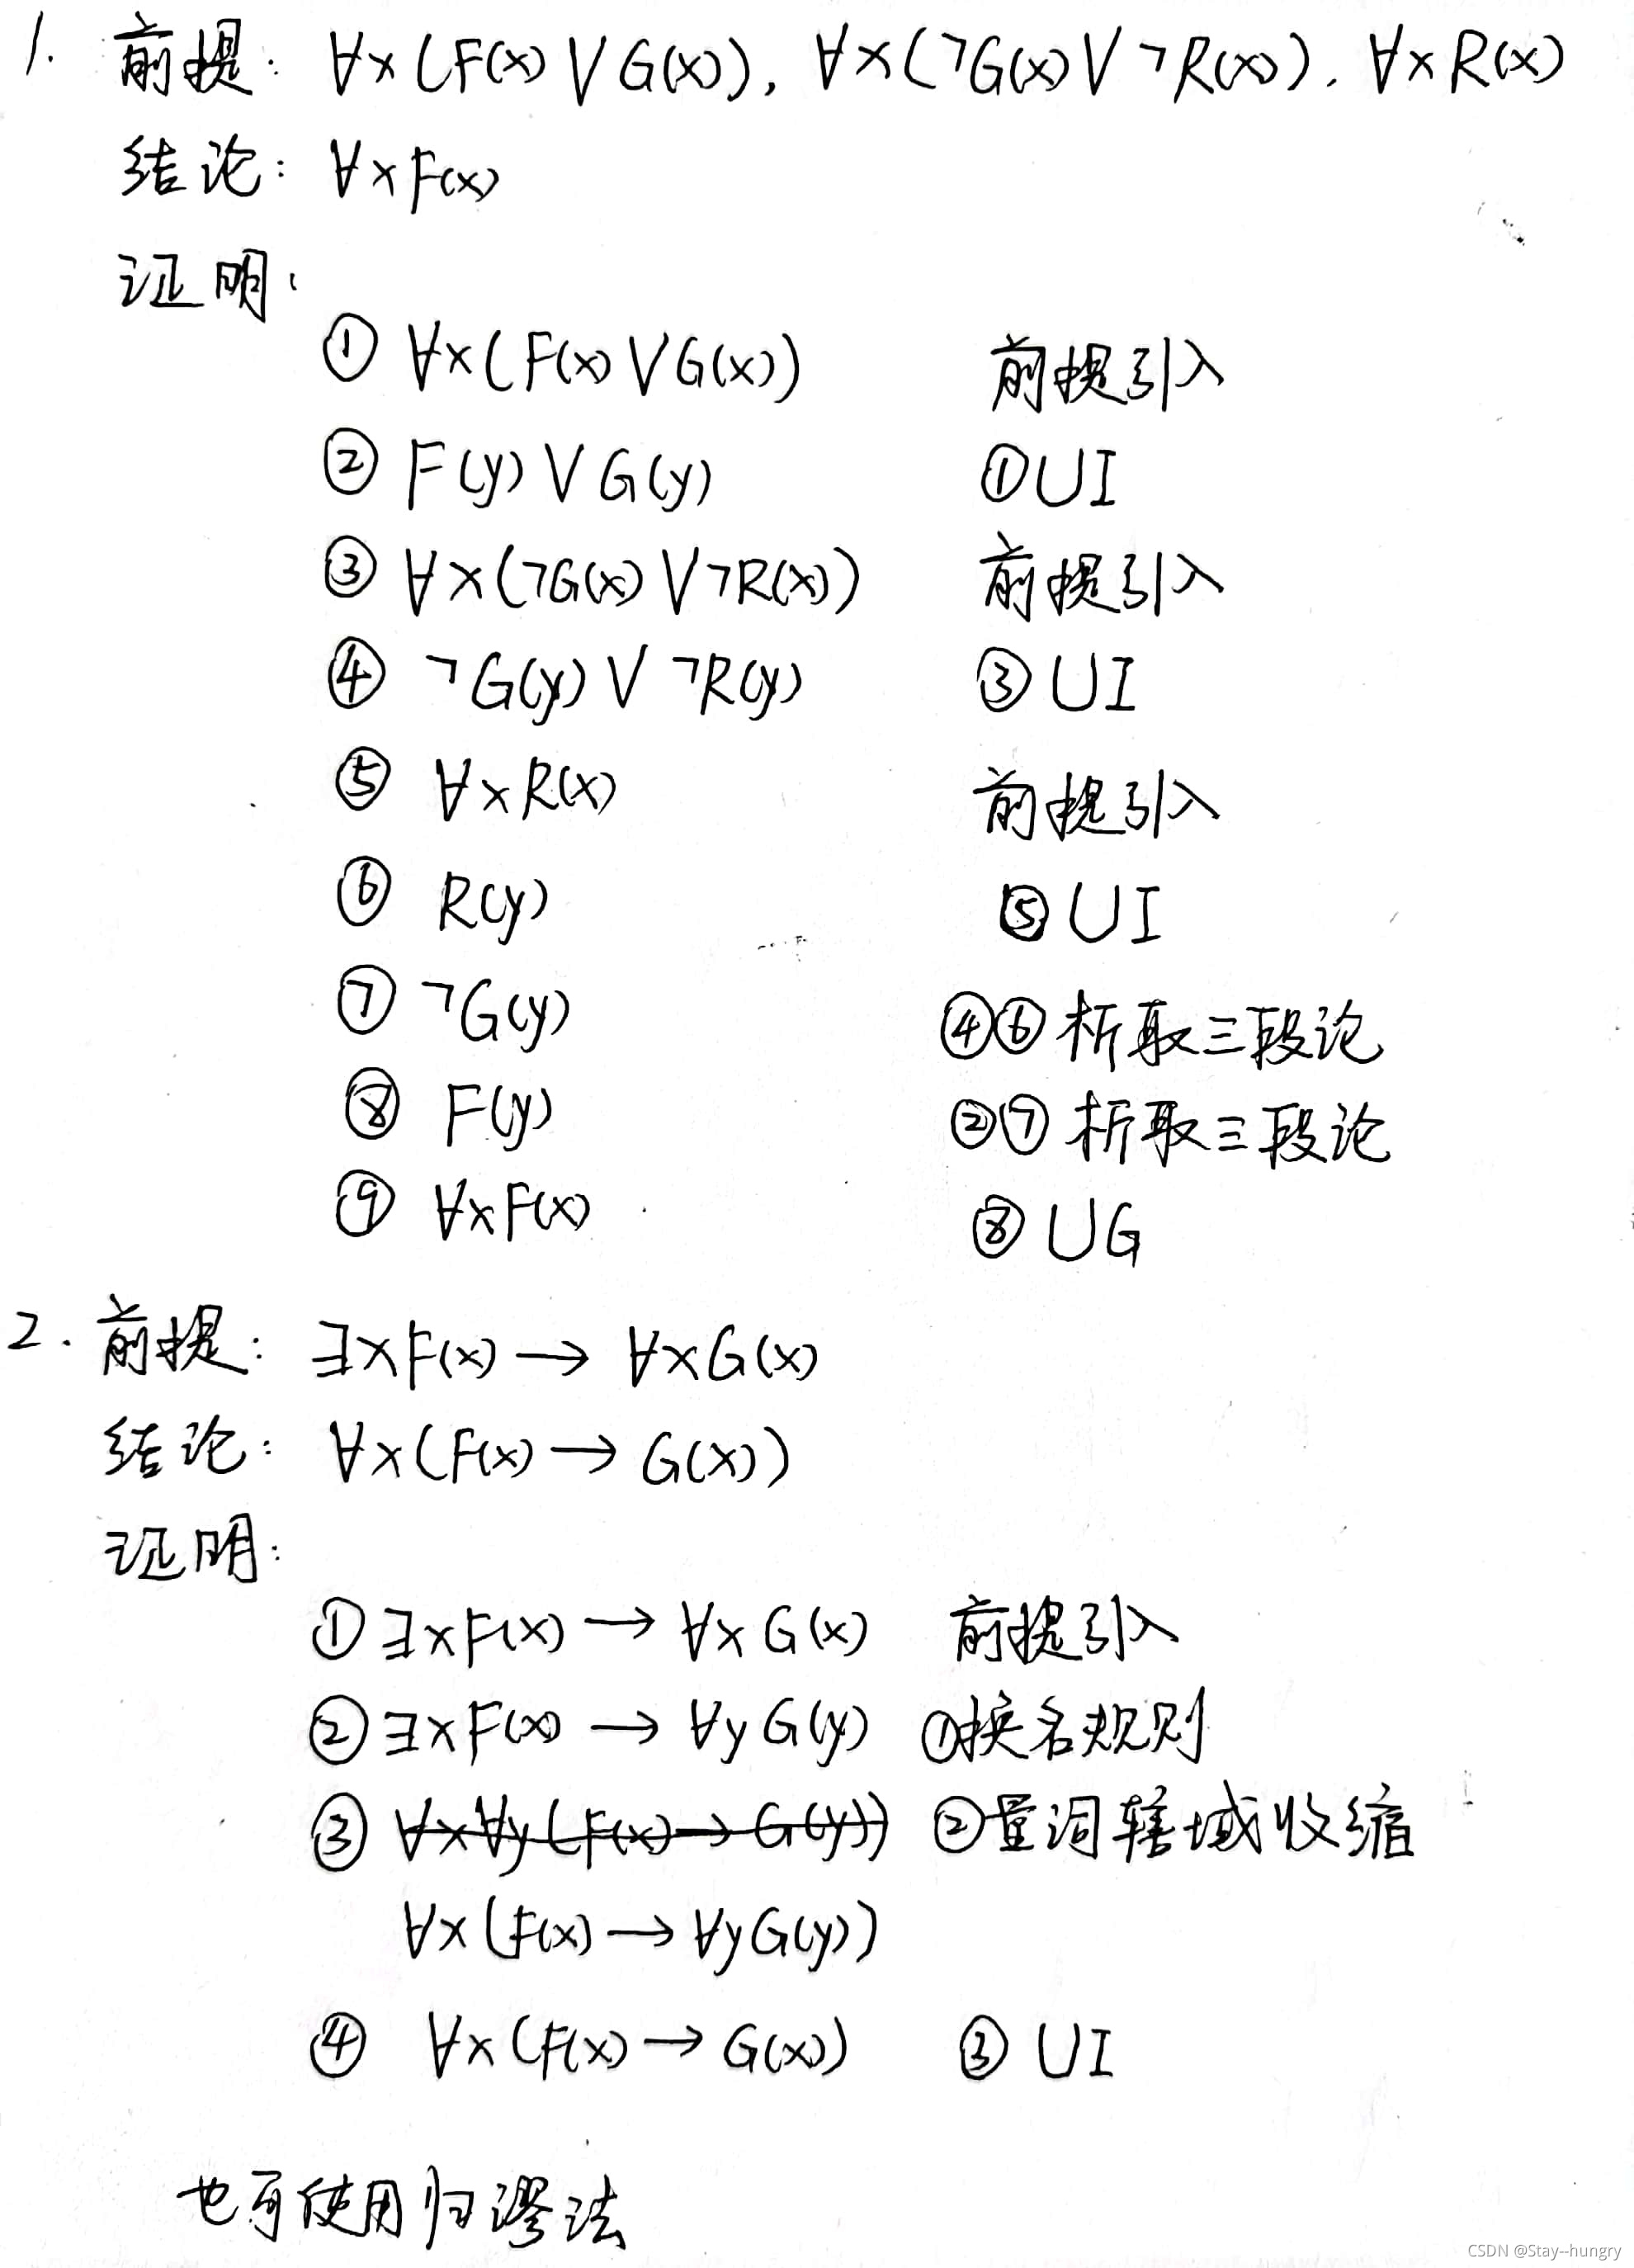 1. 前提: ∀x(F(x)∨G(x)), ∀x(¬G(x)∨¬R(x)). ∀xR(x)
结论: ∀xF(x)
证明:
① ∀x(F(x)∨G(x)) 前提引入
② F(y)∨G(y) ①UI
③ ∀x(¬G(x)∨¬R(x)) 前提引入
④ ¬G(y)∨¬R(y) ③UI
⑤ ∀xR(x) 前提引入
⑥ R(y) ⑤UI
⑦ ¬G(y) ④⑥析取三段论
⑧ F(y) ②⑦析取三段论
⑨ ∀xF(x) ⑧UG
2. 前提: ∃xF(x)→∀xG(x)
结论: ∀x(F(x)→G(x))
证明:
① ∃xF(x)→∀xG(x) 前提引入
② ∃xF(x)→∀yG(y) ①换名规则
③ ∀x∀y(F(x)→G(y)) ②量词辖域收缩
∀x(F(x)→∀yG(y))
④ ∀x(F(x)→G(x)) ③UI
也可使用归谬法
CSDN @Stay--hungry